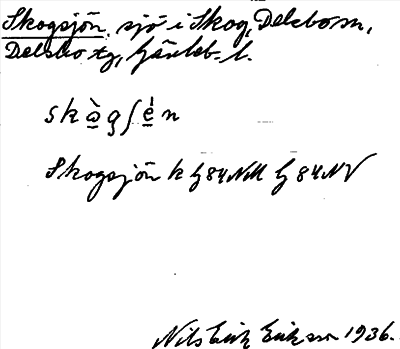 Skogsjön, sjö i Skog, Delsbo sn,
Delsbo tg, Gävleb. l.
skὰ̱gʃė̱n
Skogsjön k G84NM G84NV
Nils Erik Eriksson 1936.